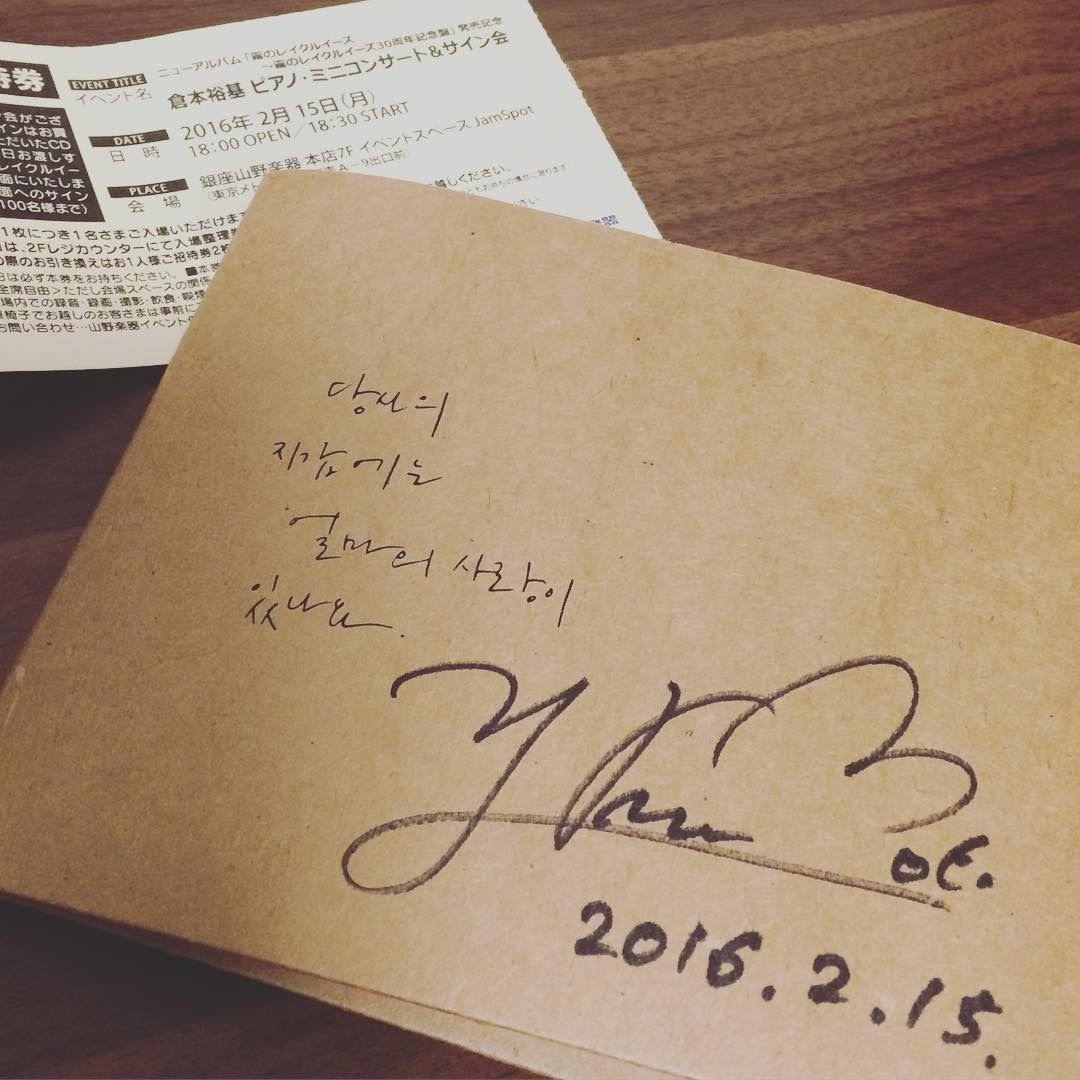 待券
EVENT TITLE
イベント名
ニューアルバム「霧のレイクルイーズ
～霧のレイクルイーズ30周年記念盤」発売記念
倉本裕基 ピアノ・ミニコンサート&サイン会
DATE
日 時
2016年 2月 15日(月)
18:00 OPEN／18:30 START
PLACE
会 場
銀座山野楽器 本店7F イベントスペース JamSpot
(東京メ
A－9出口前)
会がござ
インはお買
ただいたCD
日お渡しす
レイクルイー
面にいたしま
面へのサイン
100名様まで)
越しください。
1枚につき1名さまご入場いただけます
は、2Fレジカウンターにて入場整理
の際のお引き換えはお1人様ご招待券2枚
日は必ず本券をお持ちください。■本券
全席自由>ただし会場スペースの関係
場内での録音・録画・撮影・飲食・喫煙
椅子でお越しのお客さまは事前に
お問い合わせ…山野楽器イベント
당신의
지갑에는
얼마의 사랑이
있나요.
2016.2.15.